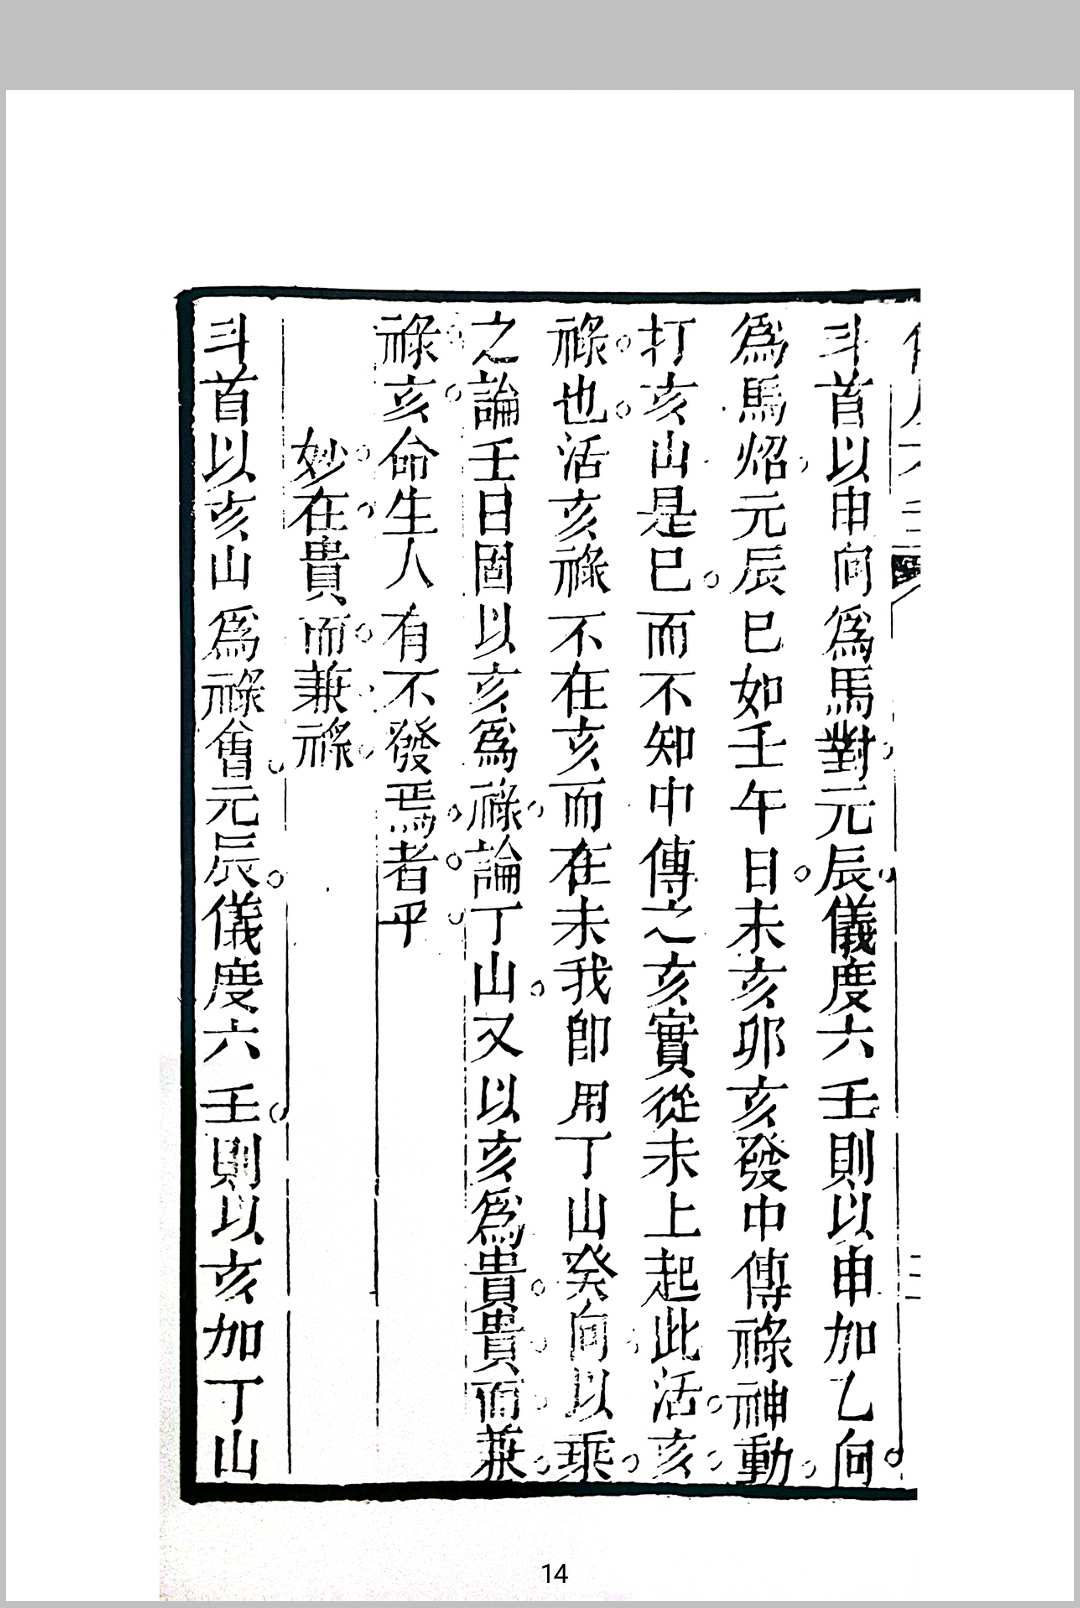 斗首以申向為馬對元辰儀度六壬則以申加乙向
為馬炤元辰巳如壬午日未亥卯亥發中傳祿神動
打亥山是巳而不知中傳之亥實從未上起此活亥
祿也活亥祿不在亥而在未我即用丁山癸向以乘
之論壬日固以亥為祿論丁山又以亥為貴貴而兼
祿亥命生人有不發焉者乎
妙在貴而兼祿
斗首以亥山為祿會元辰儀度六壬則以亥加丁山
14